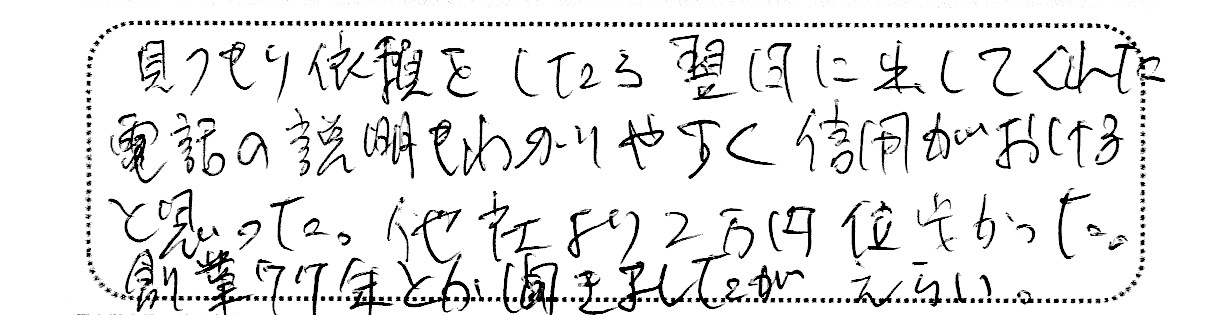 見つもり依頼をしたら翌日に出してくれた
電話の説明もわかりやすく信用がおける
と思った。他社より2万円位安かった。
創業77年とか聞きましたが えらい。